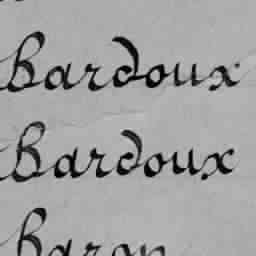 Bardoux
Bardoux
Baron